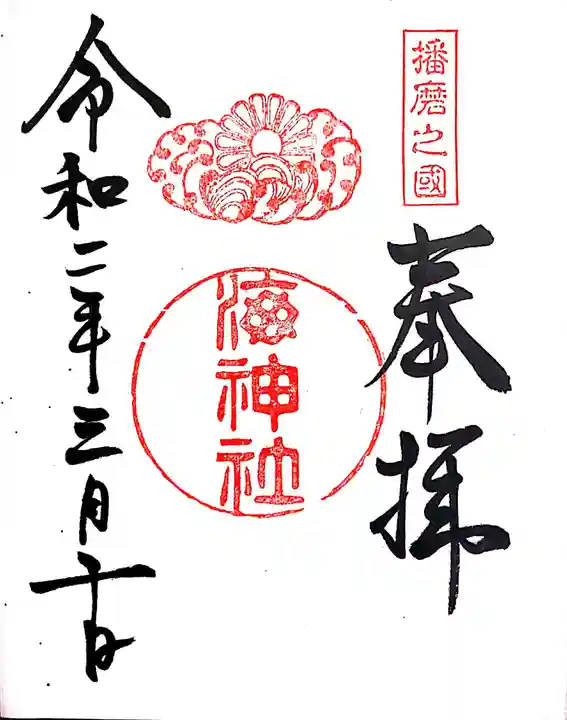 播磨之國
奉拝
海神社
令和二年三月十日